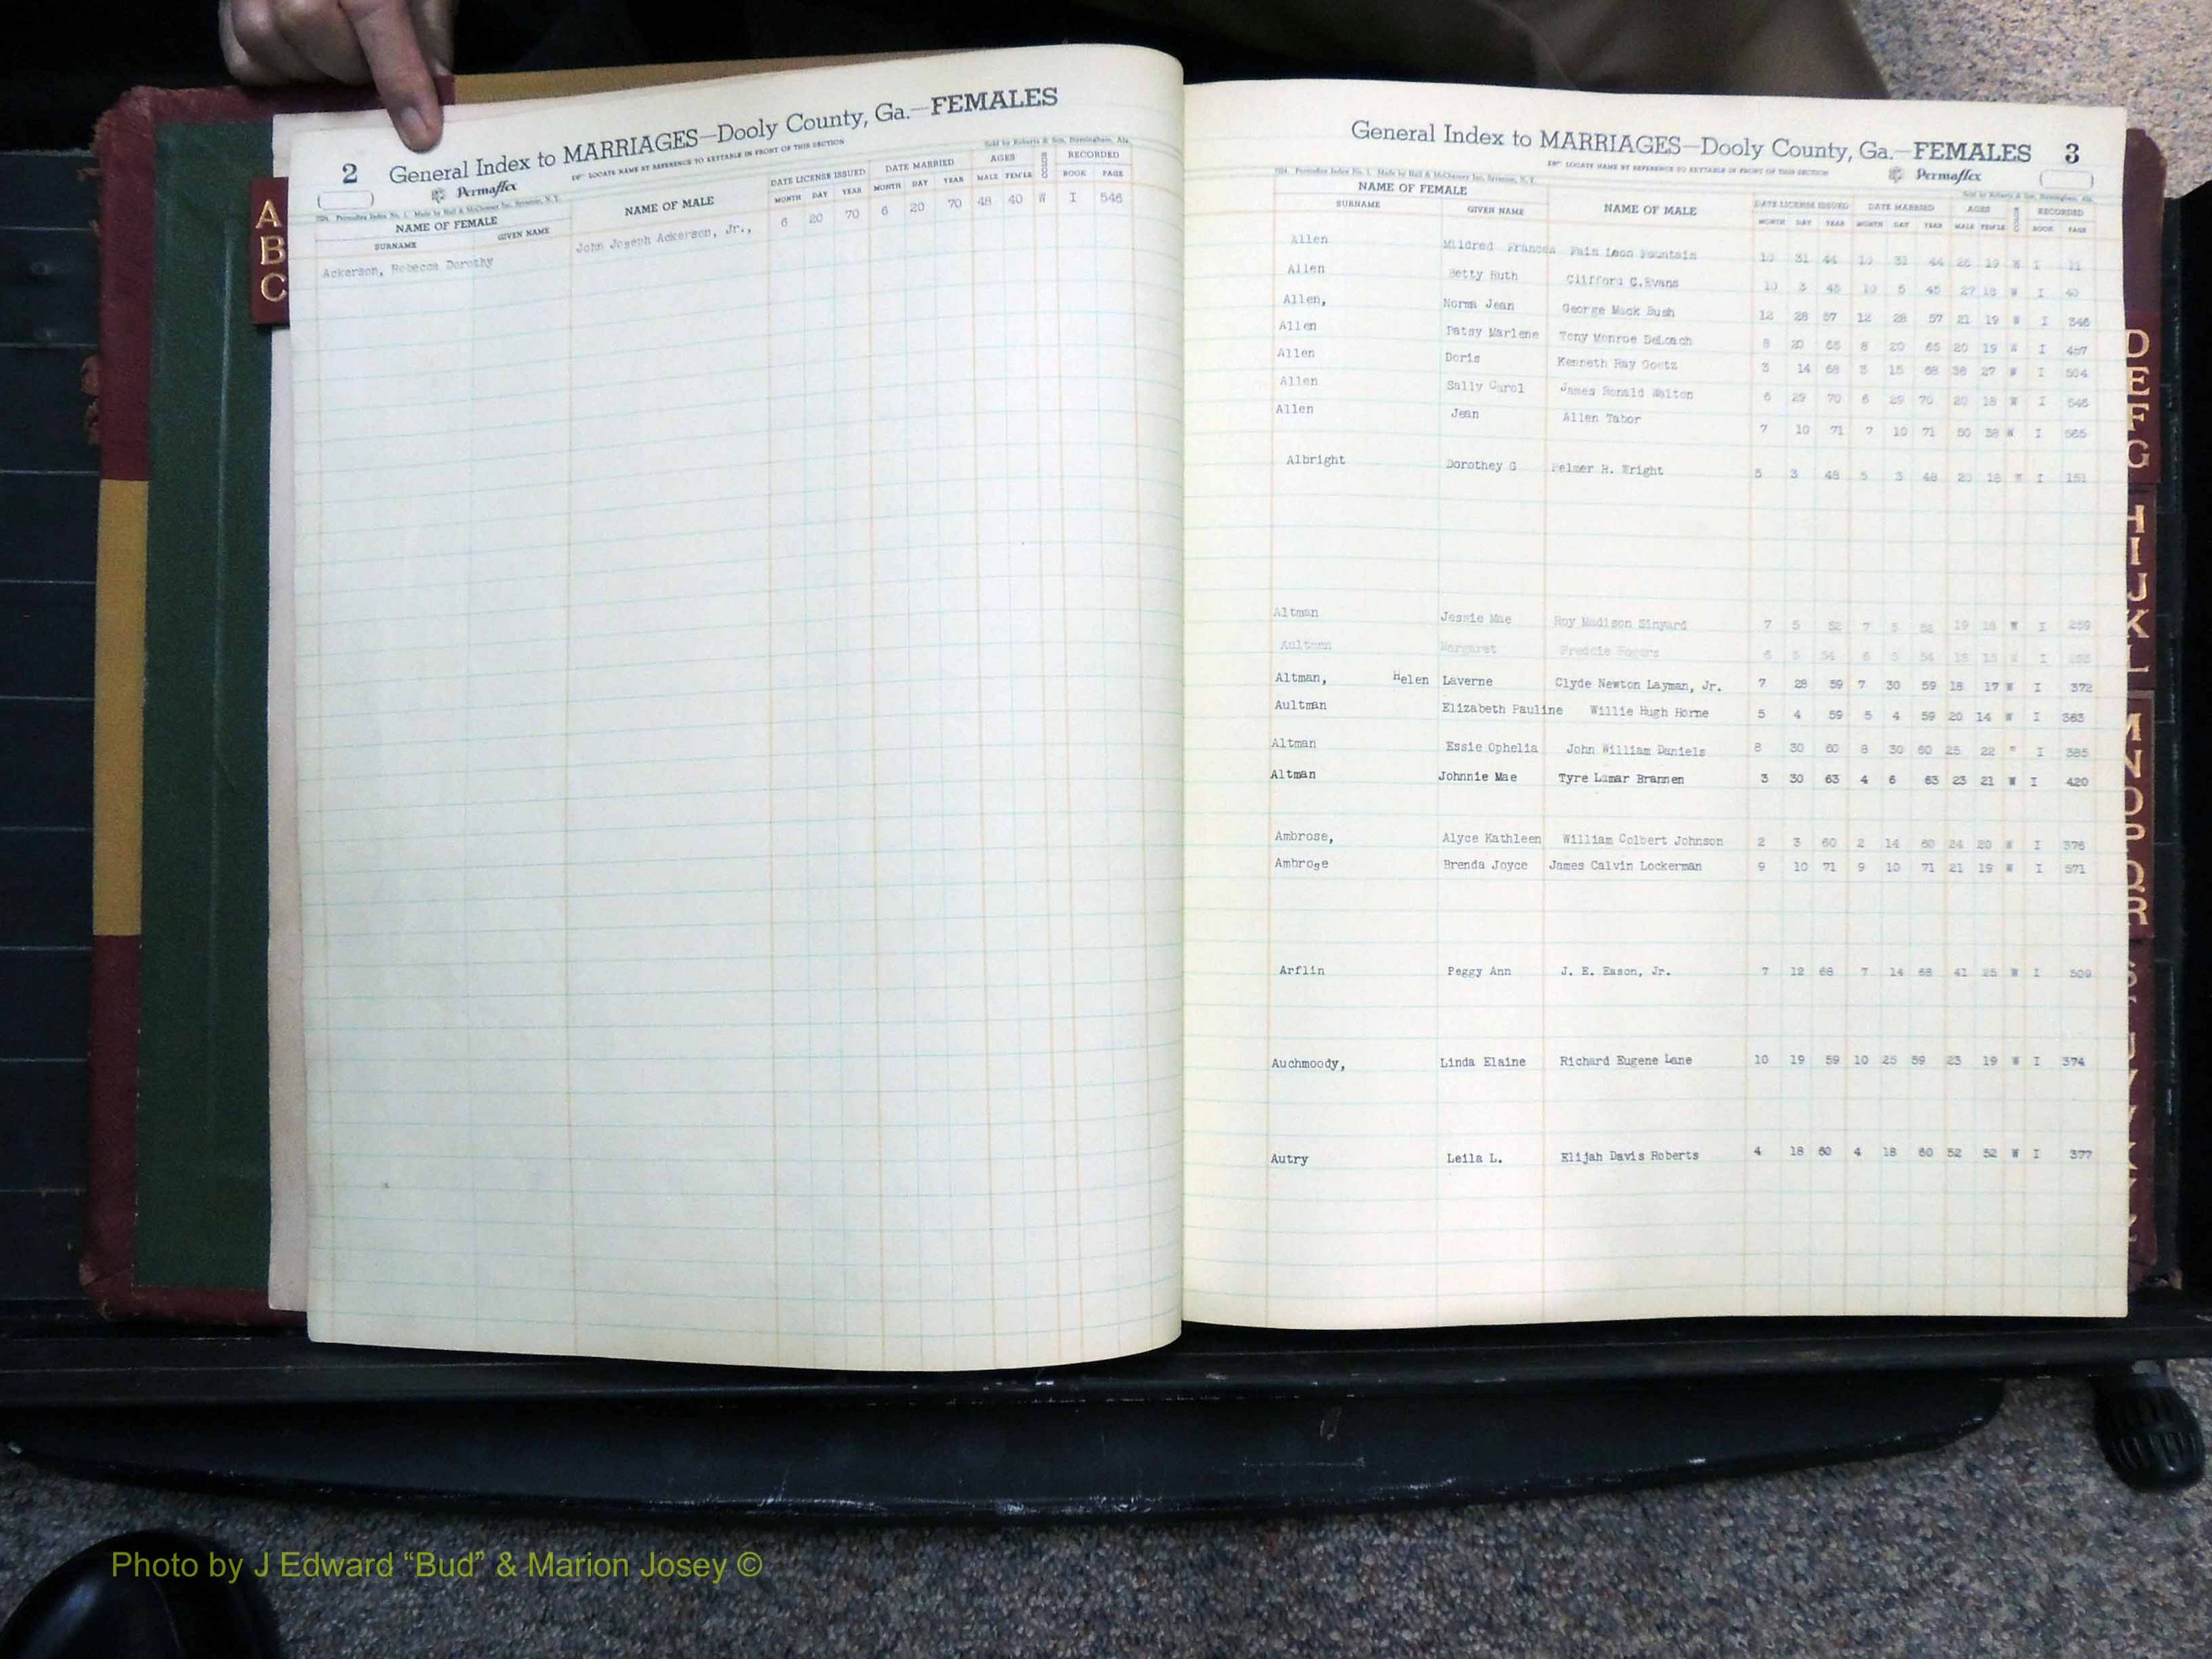 2 General Index to MARRIAGES—Dooly County, Ga.—FEMALES
Permaflex
LOCATE NAME BY REFERENCE TO KEYTABLE IN FRONT OF THIS SECTION
Sold by Roberts & Son, Birmingham, Ala.
NAME OF FEMALE
SURNAME GIVEN NAME
NAME OF MALE
DATE LICENSE ISSUED DATE MARRIED AGES RECORDED
MONTH DAY YEAR MONTH DAY YEAR MALE FEM'LE BOOK PAGE
Ackerson, Rebecca Dorothy John Joseph Ackerson, Jr., 6 20 70 6 20 70 48 40 W I 546
A
B
C
General Index to MARRIAGES—Dooly County, Ga.—FEMALES 3
LOCATE NAME BY REFERENCE TO KEYTABLE IN FRONT OF THIS SECTION
Permaflex
Sold by Roberts & Son, Birmingham, Ala.
NAME OF FEMALE
SURNAME GIVEN NAME NAME OF MALE
DATE LICENSE ISSUED DATE MARRIED AGES RECORDED
MONTH DAY YEAR MONTH DAY YEAR MALE FEM'LE BOOK PAGE
Allen Mildred Frances Fain Leon Fountain 10 31 44 10 31 44 26 19 W I 11
Allen Betty Ruth Clifford C.Evans 10 3 45 10 5 45 27 18 W I 40
Allen, Norma Jean George Mack Bush 12 28 57 12 28 57 21 19 W I 346
Allen Patsy Marlene Tony Monroe DeLoach 8 20 65 8 20 65 20 19 W I 457
Allen Doris Kenneth Ray Goetz 3 14 68 3 15 68 38 27 W I 504
Allen Sally Carol James Ronald Walton 6 29 70 6 29 70 20 18 W I 546
Allen Jean Allen Tabor 7 10 71 7 10 71 50 38 W I 565
Albright Dorothey G Felmer R. Wright 5 3 48 5 3 48 20 18 W I 151
Altman Jessie Mae Roy Madison Sinyard 7 5 52 7 5 52 19 18 W I 259
Aultman Margaret Freddie Rogers 6 5 54 6 5 54 18 15 W I
Altman, Helen Laverne Clyde Newton Layman, Jr. 7 28 59 7 30 59 18 17 W I 372
Aultman Elizabeth Pauline Willie Hugh Horne 5 4 59 5 4 59 20 14 W I 363
Altman Essie Ophelia John William Daniels 8 30 60 8 30 60 25 22 " I 385
Altman Johnnie Mae Tyre Lamar Brannen 3 30 63 4 6 63 23 21 W I 420
Ambrose, Alyce Kathleen William Colbert Johnson 2 3 60 2 14 60 24 20 W I 376
Ambrose Brenda Joyce James Calvin Lockerman 9 10 71 9 10 71 21 19 W I 571
Arflin Peggy Ann J. E. Eason, Jr. 7 12 68 7 14 68 41 25 W I 509
Auchmoody, Linda Elaine Richard Eugene Lane 10 19 59 10 25 59 23 19 W I 374
Autry Leila L. Elijah Davis Roberts 4 18 60 4 18 60 52 52 W I 377
D
E
F
G
H
I
J
K
L
M
N
O
P
Q
R
S
Photo by J Edward “Bud” & Marion Josey ©